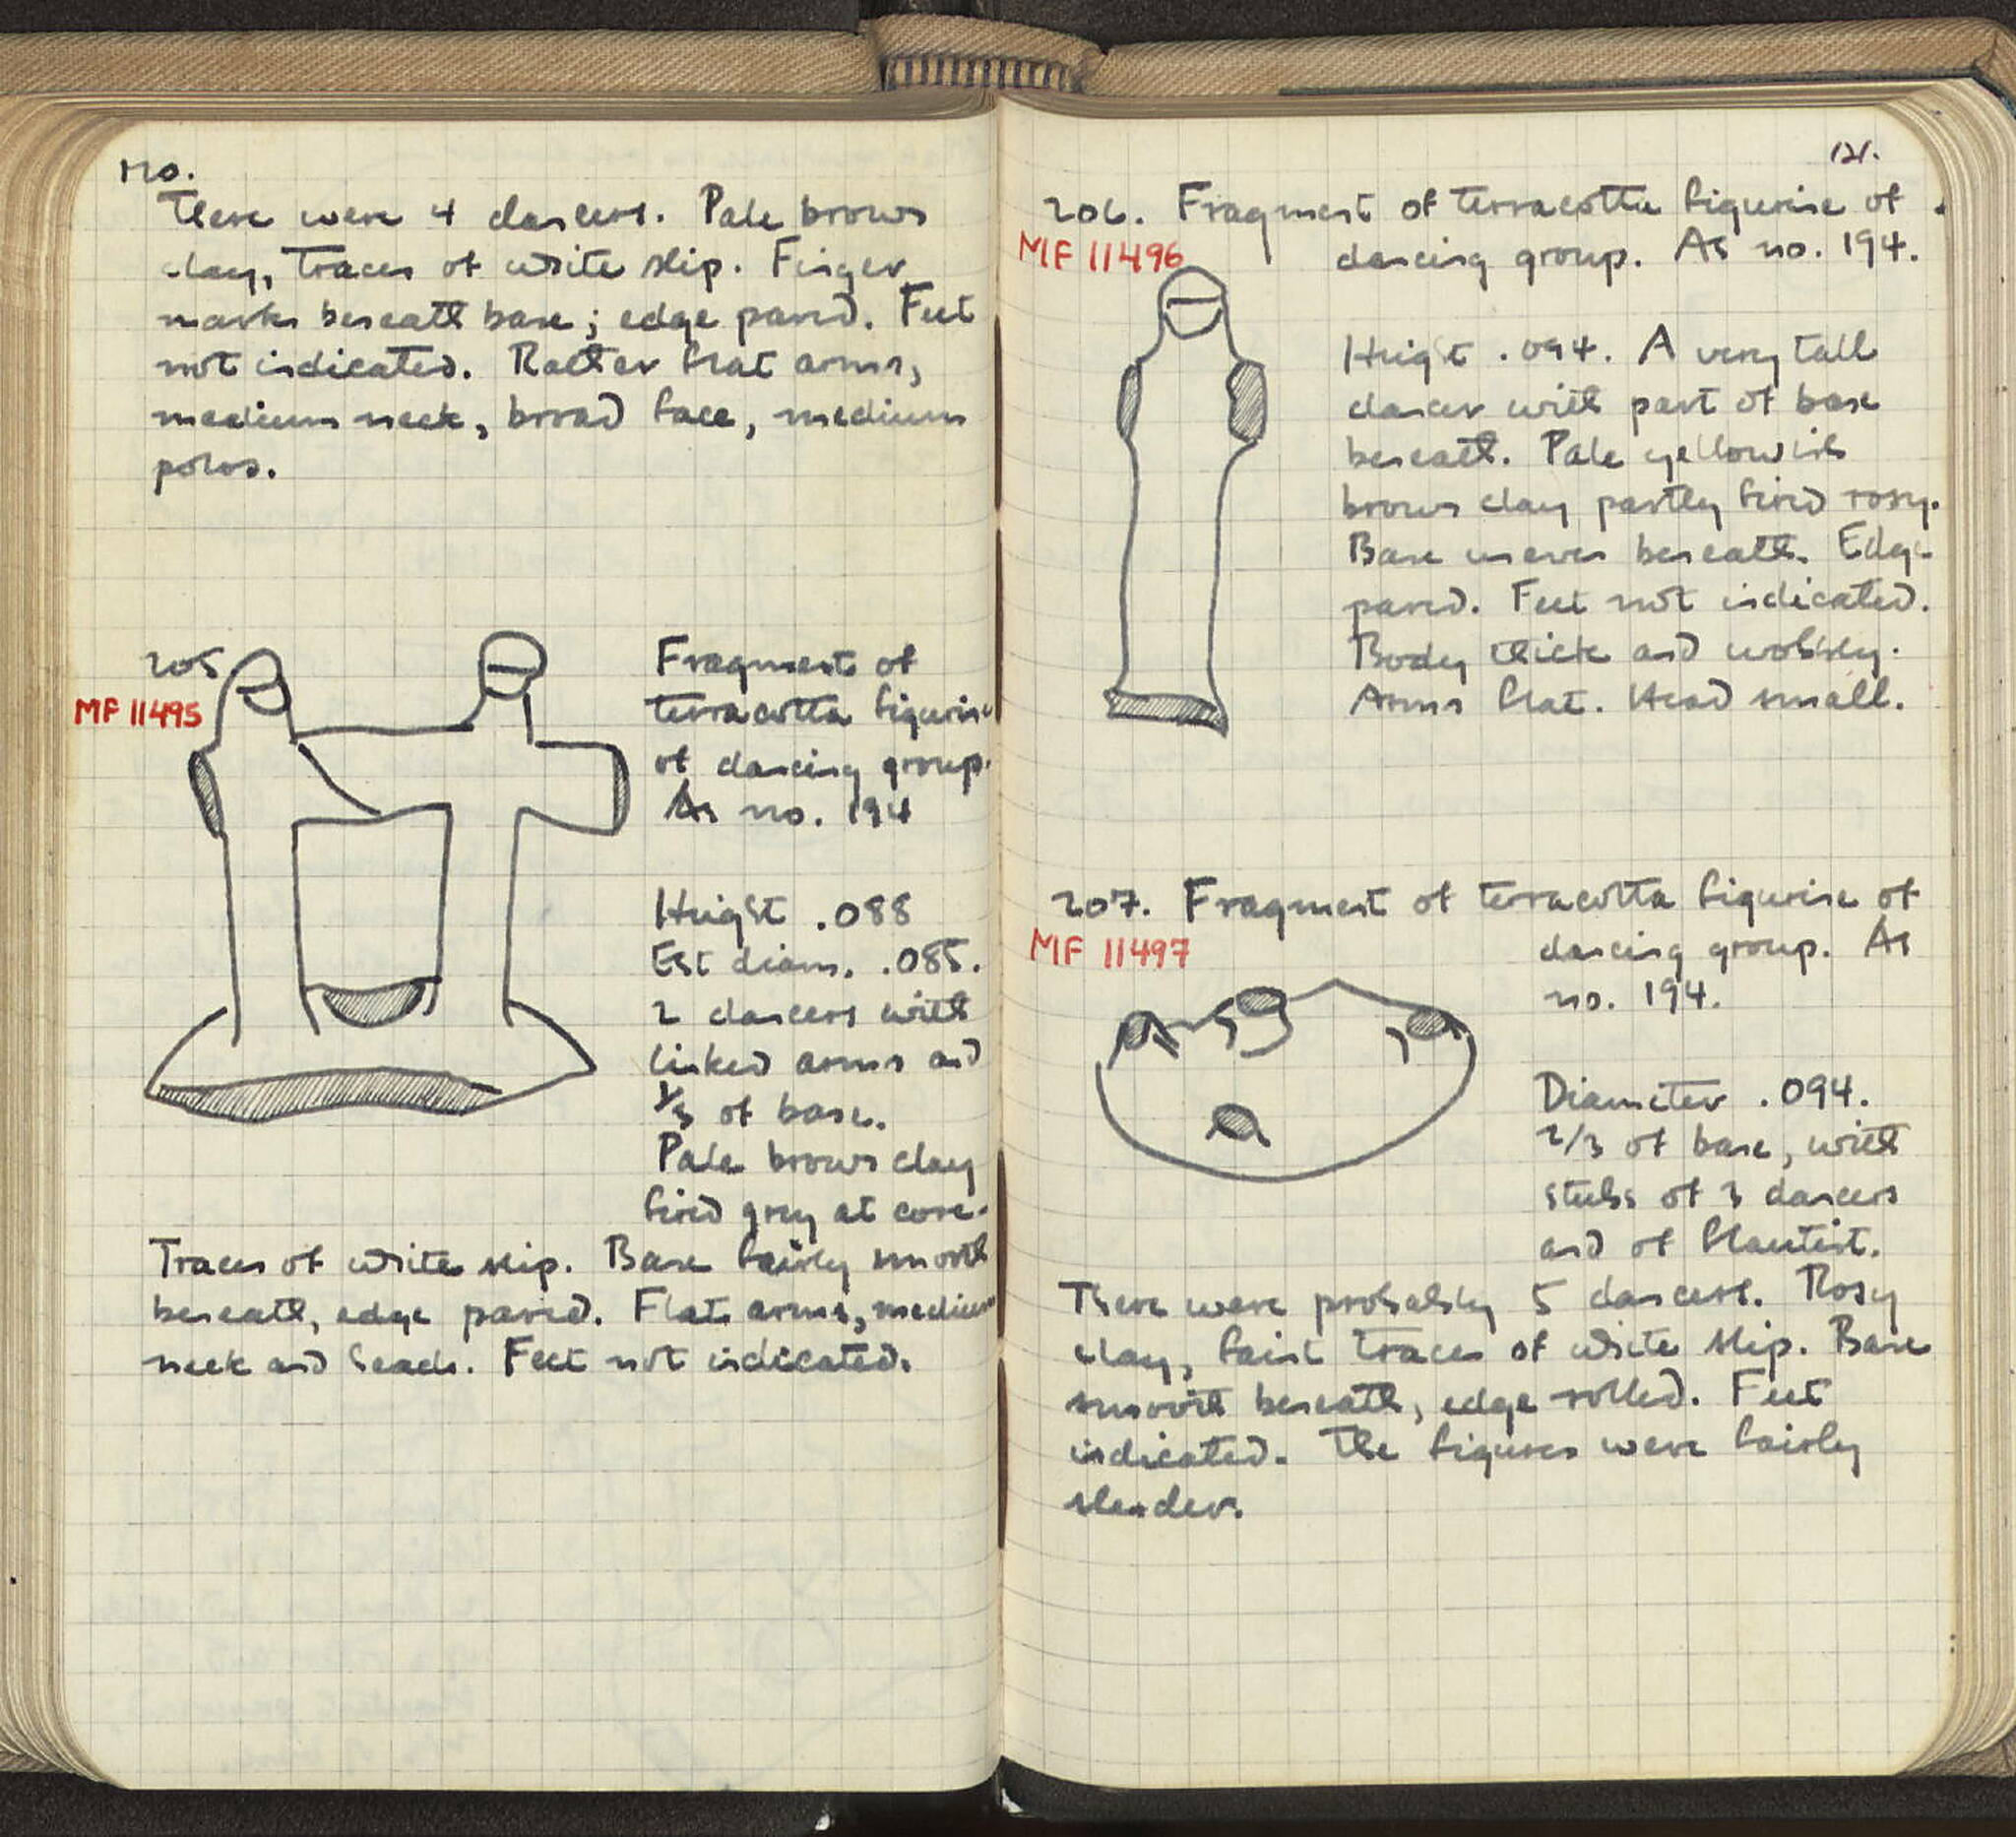 120.
There were 4 dancers. Pale brown
clay, traces of white slip. Finger
marks beneath base; edge pared. Feet
not indicated. Rather flat arms,
medium neck, broad face, medium
polos.
205
MF 11495
Fragment of
terracotta figurine
of dancing group.
As no. 194
Height .088
Est diam. .085.
2 dancers with
linked arms and
1/3 of base.
Pale brown clay
fired grey at core.
Traces of white slip. Base fairly smooth
beneath, edge pared. Flat arms, medium
neck and heads. Feet not indicated.
121.
206. Fragment of terracotta figurine of
MF 11496
dancing group. As no. 194.
Height .094. A very tall
dancer with part of base
beneath. Pale yellowish
brown clay partly fired rosy.
Base uneven beneath. Edge
pared. Feet not indicated.
Body thick and wobbly.
Arms flat. Head small.
207. Fragment of terracotta figurine of
MF 11497
dancing group. As
no. 194.
Diameter .094.
2/3 of base, with
stubs of 3 dancers
and of flautist.
There were probably 5 dancers. Rosy
clay, faint traces of white slip. Base
smooth beneath, edge rolled. Feet
indicated. The figures were fairly
slender.